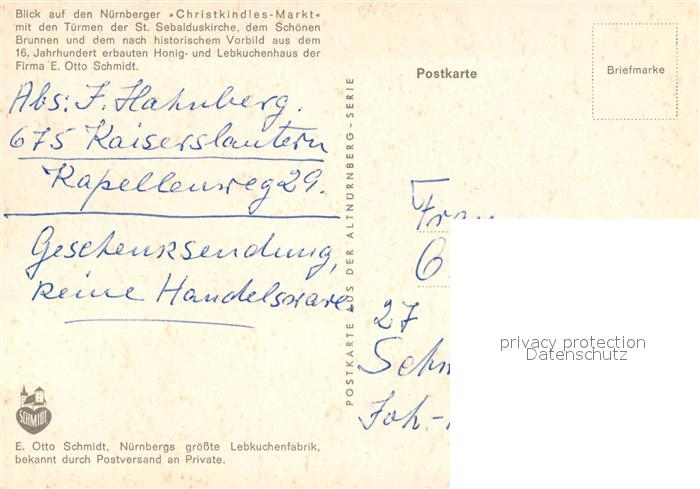 Blick auf den Nürnberger »Christkindles-Markt«
mit den Türmen der St. Sebalduskirche, dem Schönen
Brunnen und dem nach historischem Vorbild aus dem
16. Jahrhundert erbauten Honig- und Lebkuchenhaus der
Firma E. Otto Schmidt.
Abs: J. Hahnberg.
675 Kaiserslautern
Kapellenweg 29.
Geschenksendung,
keine Handelsware.
SCHMIDT
E. Otto Schmidt, Nürnbergs größte Lebkuchenfabrik,
bekannt durch Postversand an Private.
POSTKARTE AUS DER ALTNÜRNBERG-SERIE
Postkarte
Briefmarke
Frau
27
privacy protection
Datenschutz